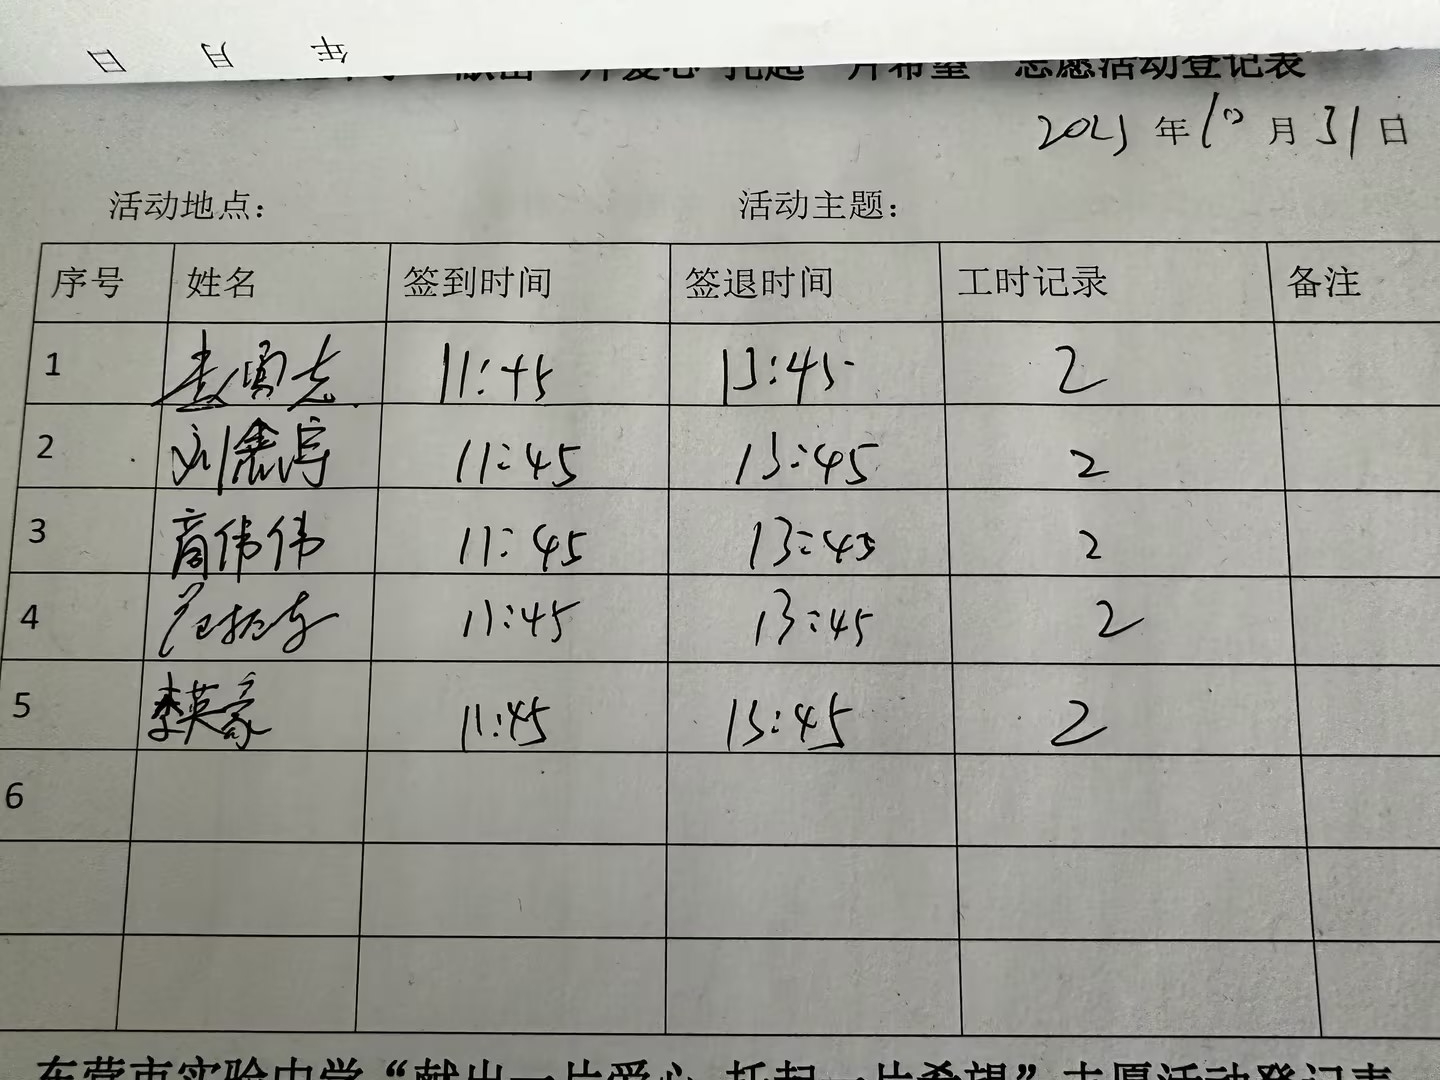 日 月 年
献出一片爱心 托起一片希望 志愿活动登记表
2023年10月31日
活动地点： 活动主题：
序号 姓名 签到时间 签退时间 工时记录 备注
1 11:45 13:45 2
2 刘鑫淳 11:45 13:45 2
3 商伟伟 11:45 13:45 2
4 11:45 13:45 2
5 李英豪 11:45 13:45 2
6
东营市实验中学“献出一片爱心 托起一片希望”志愿活动登记表